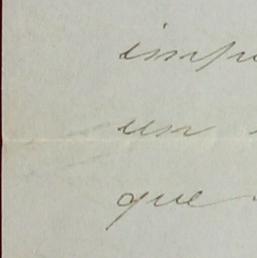 imp
un
que